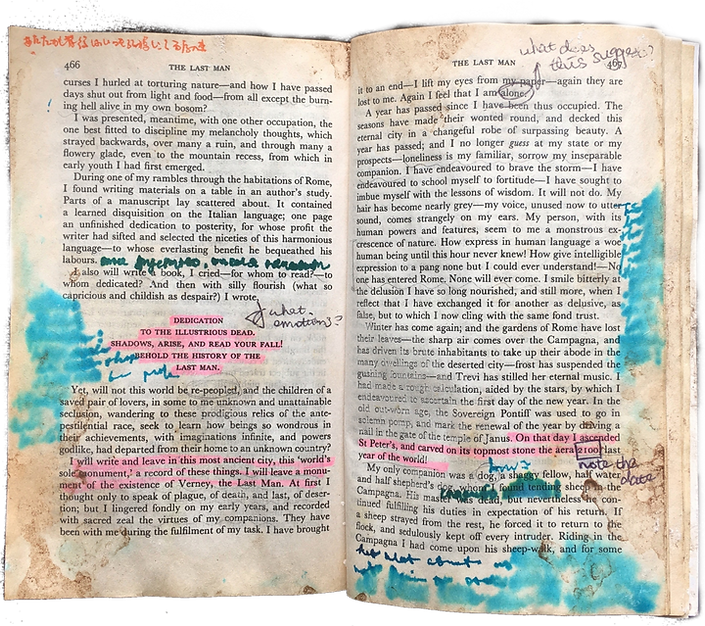 466
THE LAST MAN
curses I hurled at torturing nature—and how I have passed
days shut out from light and food—from all except the burn-
ing hell alive in my own bosom?
I was presented, meantime, with one other occupation, the
one best fitted to discipline my melancholy thoughts, which
strayed backwards, over many a ruin, and through many a
flowery glade, even to the mountain recess, from which in
early youth I had first emerged.
During one of my rambles through the habitations of Rome,
I found writing materials on a table in an author's study.
Parts of a manuscript lay scattered about. It contained
a learned disquisition on the Italian language; one page
an unfinished dedication to posterity, for whose profit the
writer had sifted and selected the niceties of this harmonious
language—to whose everlasting benefit he bequeathed his
labours.
I also will write a book, I cried—for whom to read?—to
whom dedicated? And then with silly flourish (what so
capricious and childish as despair?) I wrote,
what
emotions?
DEDICATION
TO THE ILLUSTRIOUS DEAD.
SHADOWS, ARISE, AND READ YOUR FALL!
BEHOLD THE HISTORY OF THE
LAST MAN.
Yet, will not this world be re-peopled, and the children of a
saved pair of lovers, in some to me unknown and unattainable
seclusion, wandering to these prodigious relics of the ante-
pestilential race, seek to learn how beings so wondrous in
their achievements, with imaginations infinite, and powers
godlike, had departed from their home to an unknown country?
I will write and leave in this most ancient city, this 'world's
sole monument,' a record of these things. I will leave a monu-
ment of the existence of Verney, the Last Man. At first I
thought only to speak of plague, of death, and last, of deser-
tion; but I lingered fondly on my early years, and recorded
with sacred zeal the virtues of my companions. They have
been with me during the fulfilment of my task. I have brought
what does
this suggest?
THE LAST MAN
467
it to an end—I lift my eyes from my paper—again they are
lost to me. Again I feel that I am alone.
A year has passed since I have been thus occupied. The
seasons have made their wonted round, and decked this
eternal city in a changeful robe of surpassing beauty. A
year has passed; and I no longer guess at my state or my
prospects—loneliness is my familiar, sorrow my inseparable
companion. I have endeavoured to brave the storm—I have
endeavoured to school myself to fortitude—I have sought to
imbue myself with the lessons of wisdom. It will not do. My
hair has become nearly grey—my voice, unused now to utter
sound, comes strangely on my ears. My person, with its
human powers and features, seem to me a monstrous ex-
crescence of nature. How express in human language a woe
human being until this hour never knew! How give intelligible
expression to a pang none but I could ever understand!—No
one has entered Rome. None will ever come. I smile bitterly at
the delusion I have so long nourished, and still more, when I
reflect that I have exchanged it for another as delusive, as
false, but to which I now cling with the same fond trust.
Winter has come again; and the gardens of Rome have lost
their leaves—the sharp air comes over the Campagna, and
has driven its brute inhabitants to take up their abode in the
many dwellings of the deserted city—frost has suspended the
gushing fountains—and Trevi has stilled her eternal music. I
had made a rough calculation, aided by the stars, by which I
endeavoured to ascertain the first day of the new year. In the
old out-worn age, the Sovereign Pontiff was used to go in
solemn pomp, and mark the renewal of the year by driving a
nail in the gate of the temple of Janus. On that day I ascended
St Peter's, and carved on its topmost stone the aera last
year of the world!
note the
date
My only companion was a dog, a shaggy fellow, half water
and half shepherd's dog, whom I found tending sheep in the
Campagna. His master was dead, but nevertheless he con-
tinued fulfilling his duties in expectation of his return. If
a sheep strayed from the rest, he forced it to return to the
flock, and sedulously kept off every intruder. Riding in the
Campagna I had come upon his sheep-walk, and for some